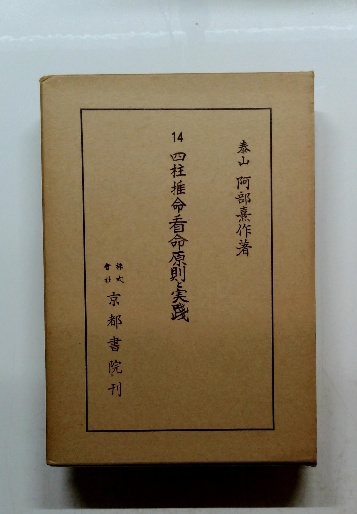 泰山 阿部熹作著
14 四柱推命看命原則と実践
株式會社 京都書院刊